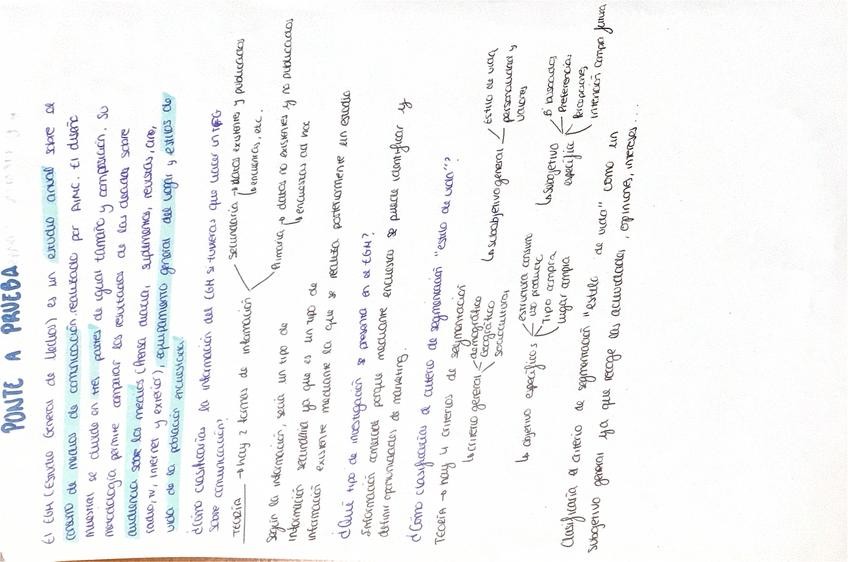 PONTE A PRUEBA
El EGM (Estudio General de Medios) es un estudio anual sobre el
consumo de medios de comunicación, realizado por AIMC. El diseño
muestral se divide en tres partes de igual tamaño y composición. Su
metodología permite comparar los resultados de las oleadas sobre
audiencia sobre los medios (Prensa diaria, suplementos, revistas, cine,
radio, tv, internet y exterior), equipamiento general del hogar y estilos de
vida de la población encuestada.
¿Cómo clasificarías la información del EGM si tuvieras que hacer un TFG
sobre comunicación?
TEORÍA → hay 2 formas de información
Secundaria → datos existentes y publicados
↳ encuestas, etc.
Primaria → datos no existentes y no publicados
↳ encuestas ad hoc
Según la información, sería un tipo de
información secundaria ya que es un tipo de
información existente mediante la que se realiza posteriormente un estudio
¿Qué tipo de investigación se presenta en el EGM?
Información comercial porque mediante encuestas se puede identificar y
definir oportunidades de marketing.
¿Cómo clasificarías el criterio de segmentación "estilo de vida"?
TEORÍA → hay 4 criterios de segmentación
↳ criterio general
demográfico
Geográfico
sociocultural
↳ subjetivo general
Estilo de vida
personalidad y
valores
↳ objetivo específicos
estructura consumo
uso producto
Tipo compra
lugar compra
↳ subjetivo
específico
Bº buscados
Preferencias
Percepciones
Intención compra futura
Clasificaría el criterio de segmentación "estilo de vida" como un
subjetivo general ya que recoge las actividades, opiniones, intereses...